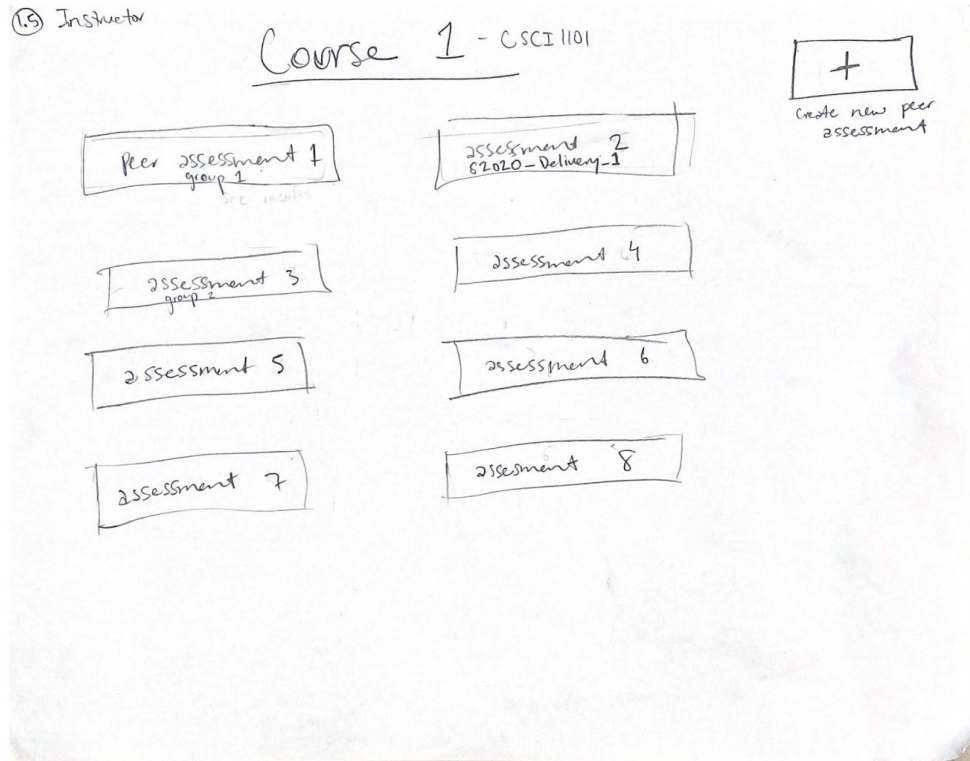 1.5 Instructor
Course 1 - CSCI1101
+
Create new peer
assessment
Peer assessment 1
group 1
see results
assessment 2
S2020-Delivery-1
assessment 3
group 2
assessment 4
assessment 5
assessment 6
assessment 7
assesment 8